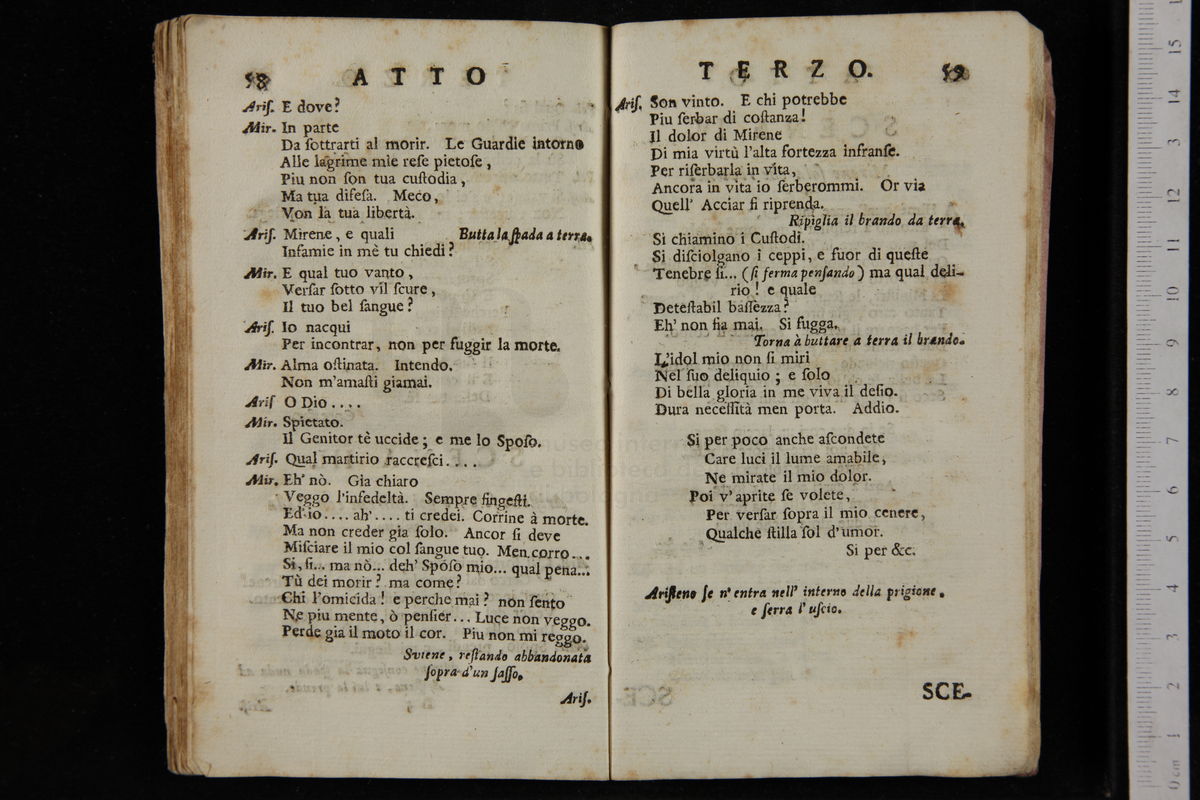 58 ATTO
Ariſ. E dove?
Mir. In parte
Da ſottrarti al morir. Le Guardie intorno
Alle lagrime mie reſe pietoſe,
Piu non ſon tua cuſtodia,
Ma tua difeſa. Meco,
Von la tua libertà.
Ariſ. Mirene, e quali Butta la ſpada a terra.
Infamie in mè tu chiedi?
Mir. E qual tuo vanto,
Verſar ſotto vil ſcure,
Il tuo bel ſangue?
Ariſ. Io nacqui
Per incontrar, non per fuggir la morte.
Mir. Alma oſtinata. Intendo.
Non m'amaſti giamai.
Ariſ O Dio....
Mir. Spietato.
Il Genitor tè uccide; e me lo Spoſo.
Ariſ. Qual martirio raccreſci....
Mir. Eh' nò. Gia chiaro
Veggo l'infedeltà. Sempre fingeſti.
Ed io.... ah'.... ti credei. Corrine à morte.
Ma non creder gia ſolo. Ancor ſi deve
Miſciare il mio col ſangue tuo. Men corro...
Si, ſi... ma nò... deh' Spoſo mio... qual pena...
Tù dei morir? ma come?
Chi l'omicida! e perche mai? non ſento
Ne piu mente, ò penſier... Luce non veggo.
Perde gia il moto il cor. Piu non mi reggo.
Sviene, reſtando abbandonata
ſopra d'un ſaſſo.
Ariſ.
TERZO. 59
Ariſ. Son vinto. E chi potrebbe
Piu ſerbar di coſtanza!
Il dolor di Mirene
Di mia virtù l'alta fortezza infranſe.
Per riſerbarla in vita,
Ancora in vita io ſerberommi. Or via
Quell' Acciar ſi riprenda.
Ripiglia il brando da terra.
Si chiamino i Cuſtodi.
Si diſciolgano i ceppi, e fuor di queſte
Tenebre ſi... (ſi ferma penſando) ma qual deli-
rio! e quale
Deteſtabil baſſezza?
Eh' non ſia mai. Si fugga.
Torna à buttare a terra il brando.
L'idol mio non ſi miri
Nel ſuo deliquio; e ſolo
Di bella gloria in me viva il deſio.
Dura neceſſità men porta. Addio.
Si per poco anche aſcondete
Care luci il lume amabile,
Ne mirate il mio dolor.
Poi v'aprite ſe volete,
Per verſar ſopra il mio cenere,
Qualche ſtilla ſol d'umor.
Si per &c.
Ariſteno ſe n' entra nell' interno della prigione.
e ſerra l'uſcio.
SCE-